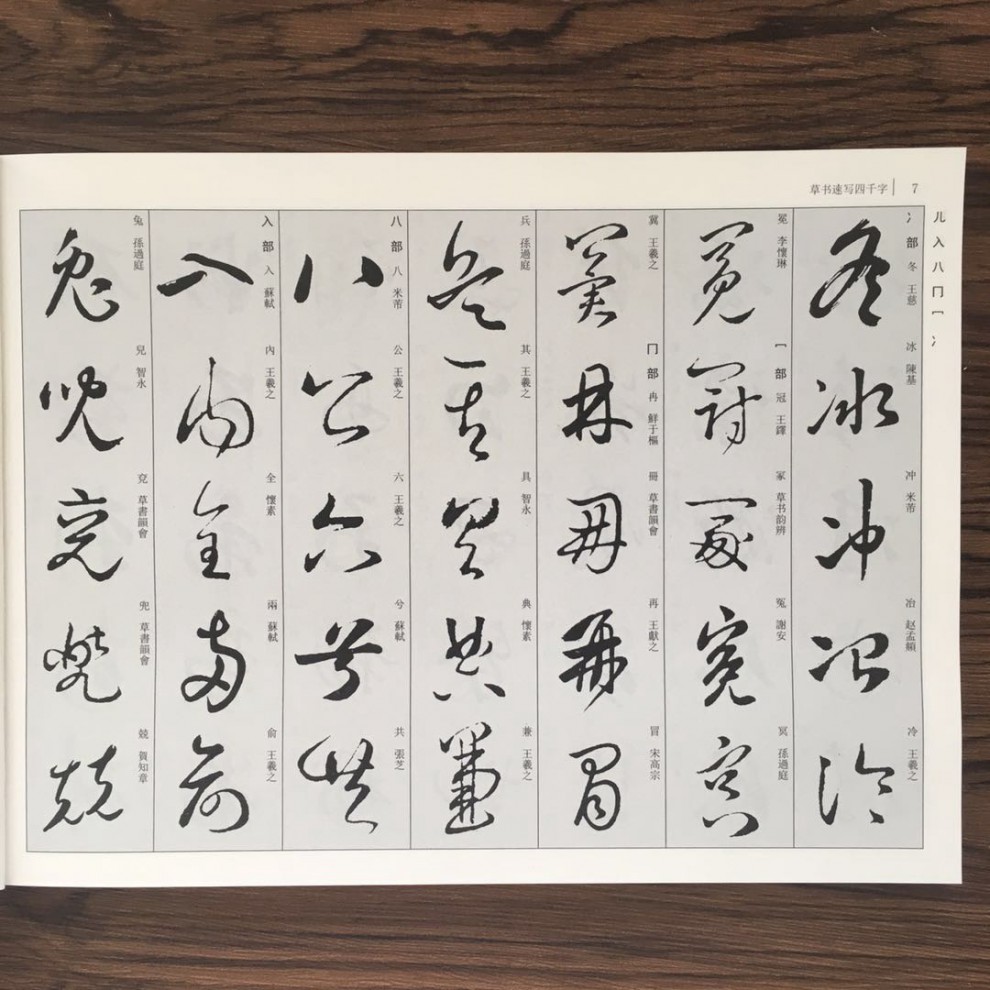 草书速写四千字 7
儿入八冂冖冫
兔 孫過庭
兔
兒 智永
兒
兗 草書韻會
兗
兜 草書韻會
兜
兢 賀知章
兢
入部 入 蘇軾
入
內 王羲之
內
全 懷素
全
兩 蘇軾
兩
俞 王羲之
俞
八部 八 米芾
八
公 王羲之
公
六 王羲之
六
兮 蘇軾
兮
共 張芝
共
兵 孫過庭
兵
其 王羲之
其
具 智永
具
典 懷素
典
兼 王羲之
兼
冀 王羲之
冀
冂部 冉 鮮于樞
冉
冊 草書韻會
冊
再 王獻之
再
冒 宋高宗
冒
冕 李懷琳
冕
冖部 冠 王鐸
冠
冢 草书韵辨
冢
冤 謝安
冤
冥 孫過庭
冥
冫部 冬 王慈
冬
冰 陳基
冰
冲 米芾
冲
冶 赵孟頫
冶
冷 王羲之
冷